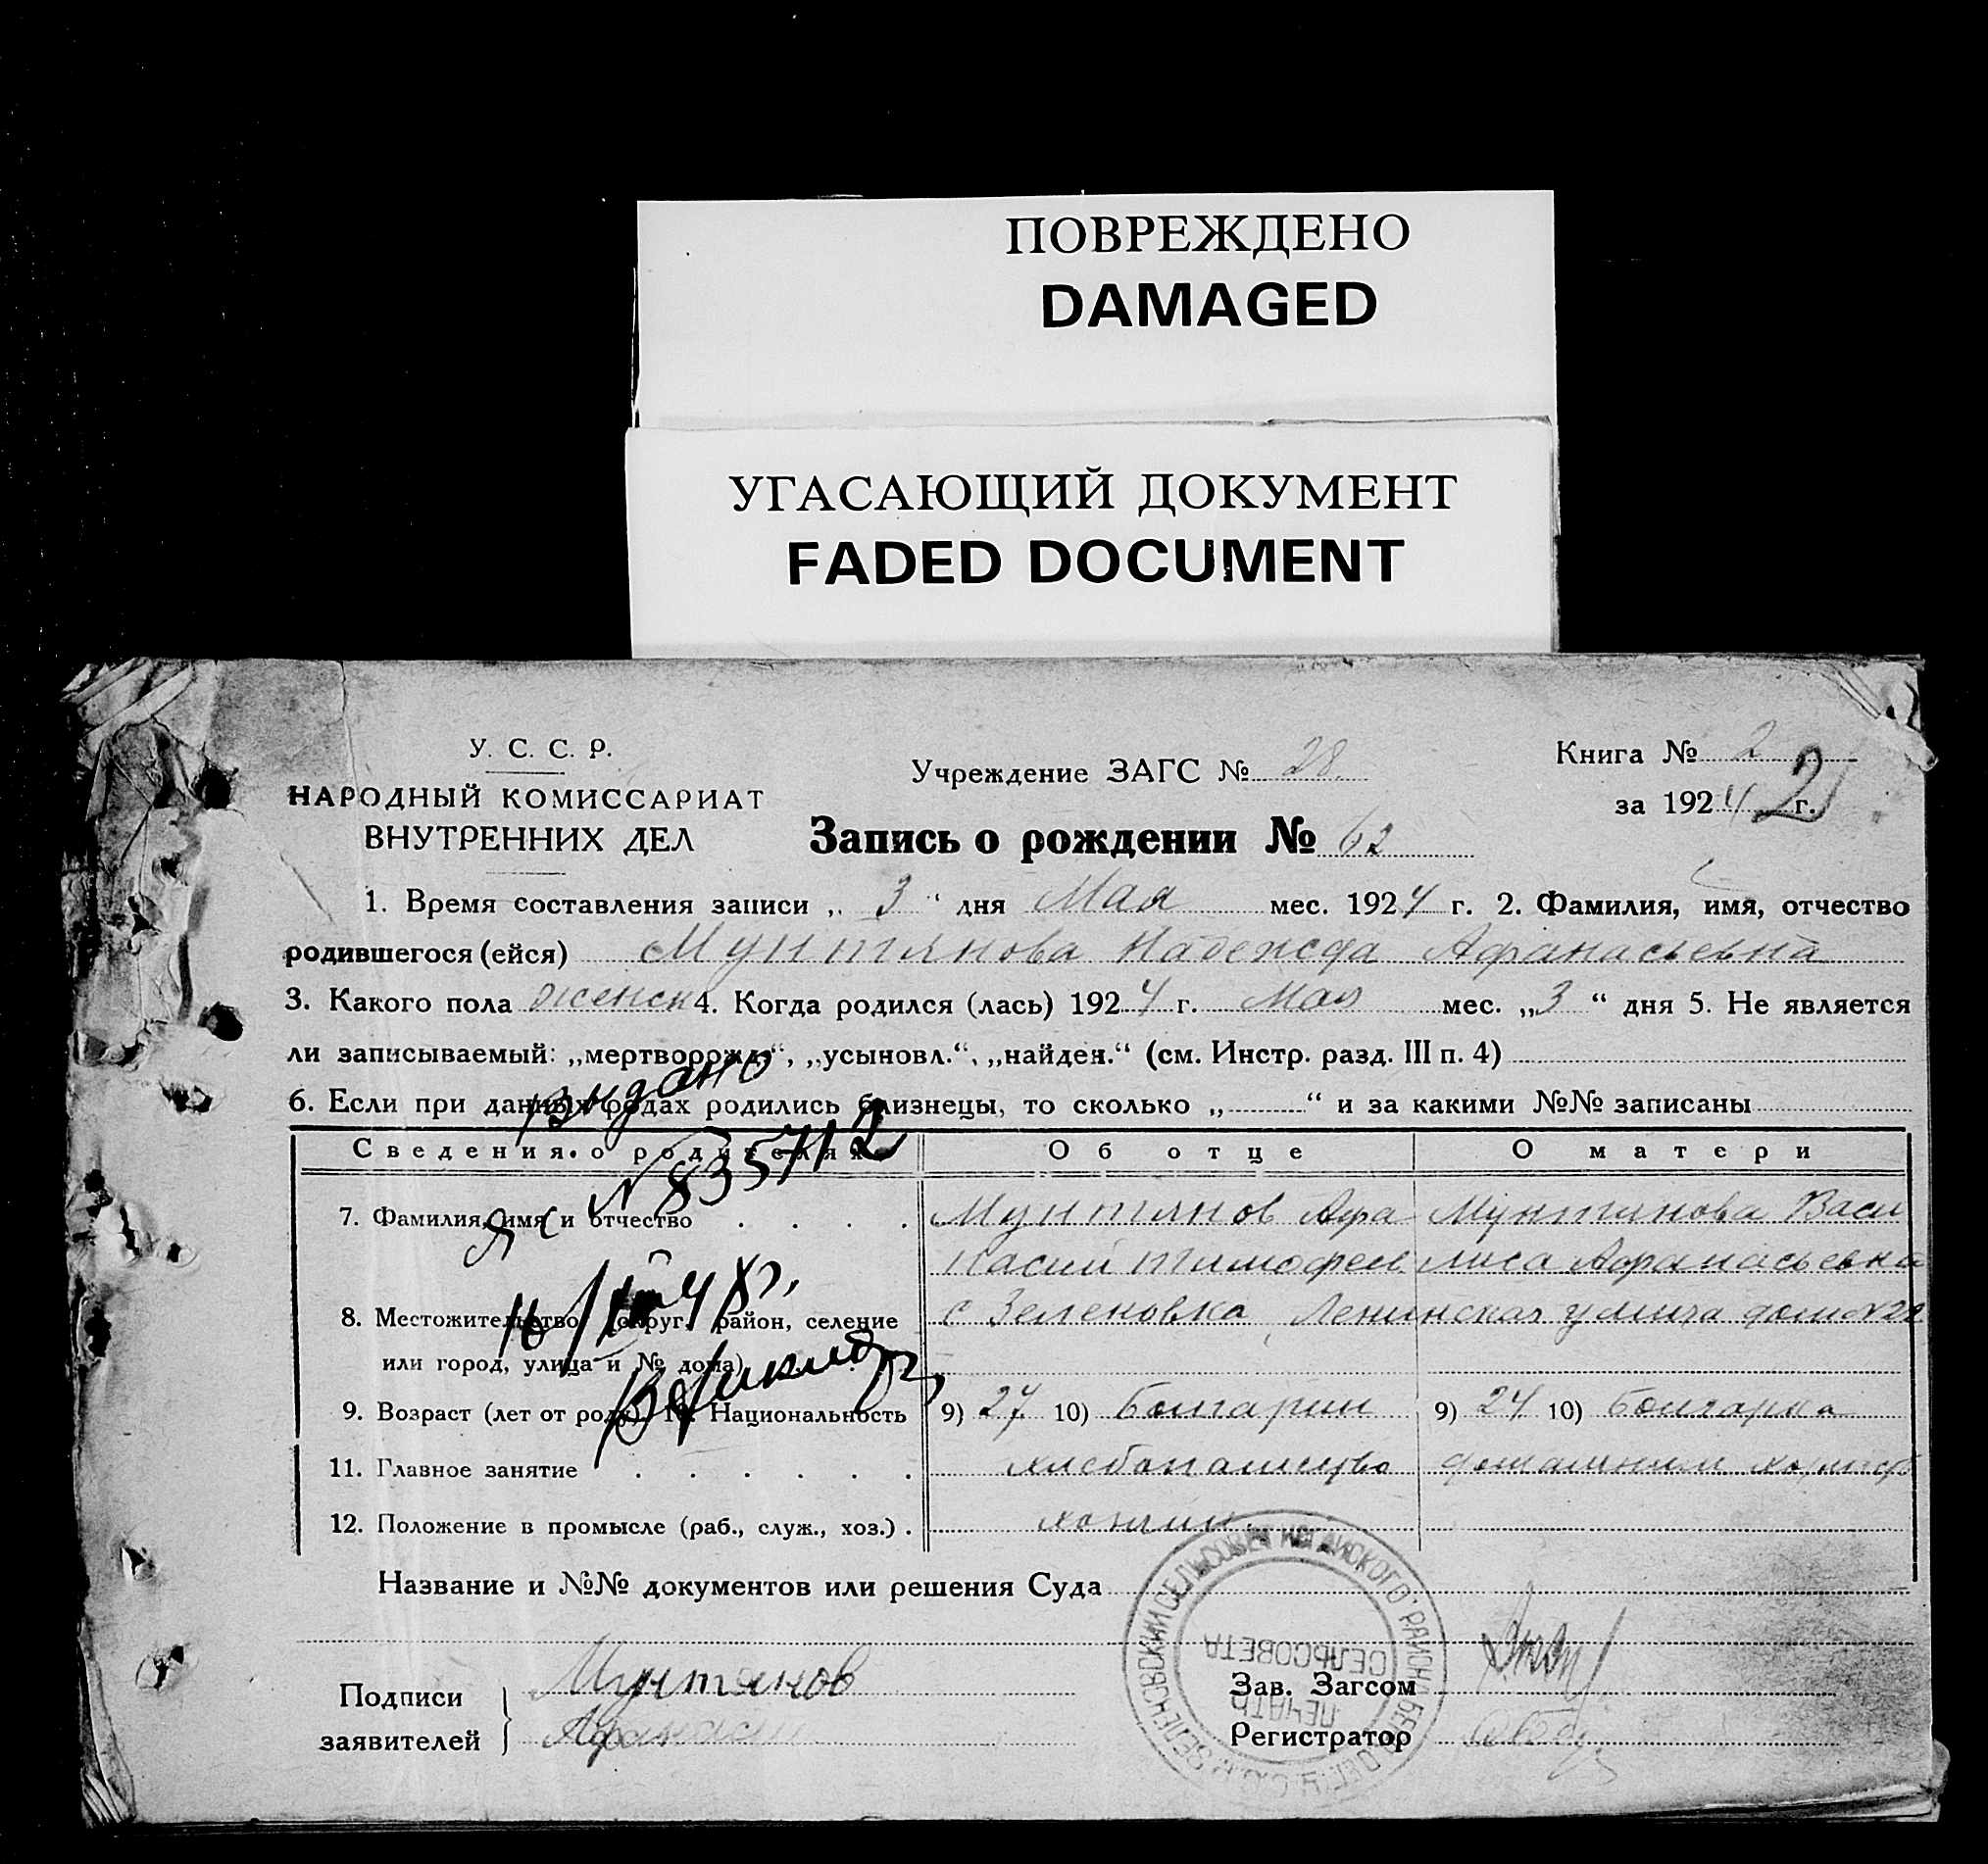 ПОВРЕЖДЕНО
DAMAGED
УГАСАЮЩИЙ ДОКУМЕНТ
FADED DOCUMENT
У. С. С. Р.
НАРОДНЫЙ КОМИССАРИАТ
ВНУТРЕННИХ ДЕЛ
Учреждение ЗАГС № 28
Книга № 2
за 1924 г. 2
Запись о рождении № 62
1. Время составления записи „ 3 “ дня Мая мес. 1924 г. 2. Фамилия, имя, отчество
родившегося (ейся) Мунтянова Надежда Афанасьевна
3. Какого пола женск 4. Когда родился (лась) 1924 г. Мая мес. „3“ дня 5. Не является
ли записываемый: „мертворожд.“, „усыновл.“, „найден.“ (см. Инстр. разд. III п. 4)
6. Если при данных родах родились близнецы, то сколько „ “ и за какими №№ записаны
Выдано
Сведения о родителях Об отце О матери
№ 835712
7. Фамилия, имя и отчество Мунтянов Афа Мунтянова Васи
ЯС
насий Тимофеев лиса Афанасьевна
8. Местожительство (округ, район, селение с Зеленовка, Ленинская улица дом №
или город, улица и № дома)
9. Возраст (лет от роду) 10. Национальность 9) 27 10) Болгарин 9) 24 10) Болгарка
11. Главное занятие хлебопашество домашним
12. Положение в промысле (раб., служ., хоз.) хозяин
Название и №№ документов или решения Суда
СЕЛЬСОВЕТ НОГАЙСКОГО РАЙОНА
ПЕЧАТЬ
СЕЛЬСОВЕТА
Подписи
заявителей
Мунтянов
Афанасий
Зав. Загсом
Регистратор